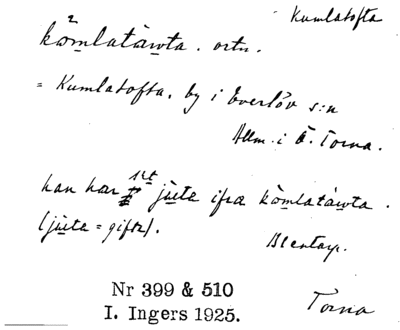 Kumlatofta
kömlatàwta. ortn.
= Kumlatofta, by i Everlöv s:n
Allm. i Ö. Torna.
han har jùeta ifrå kömlatàwta.
(jùeta = gift).
Blentarp.
Nr 399 & 510
I. Ingers 1925.
Torna